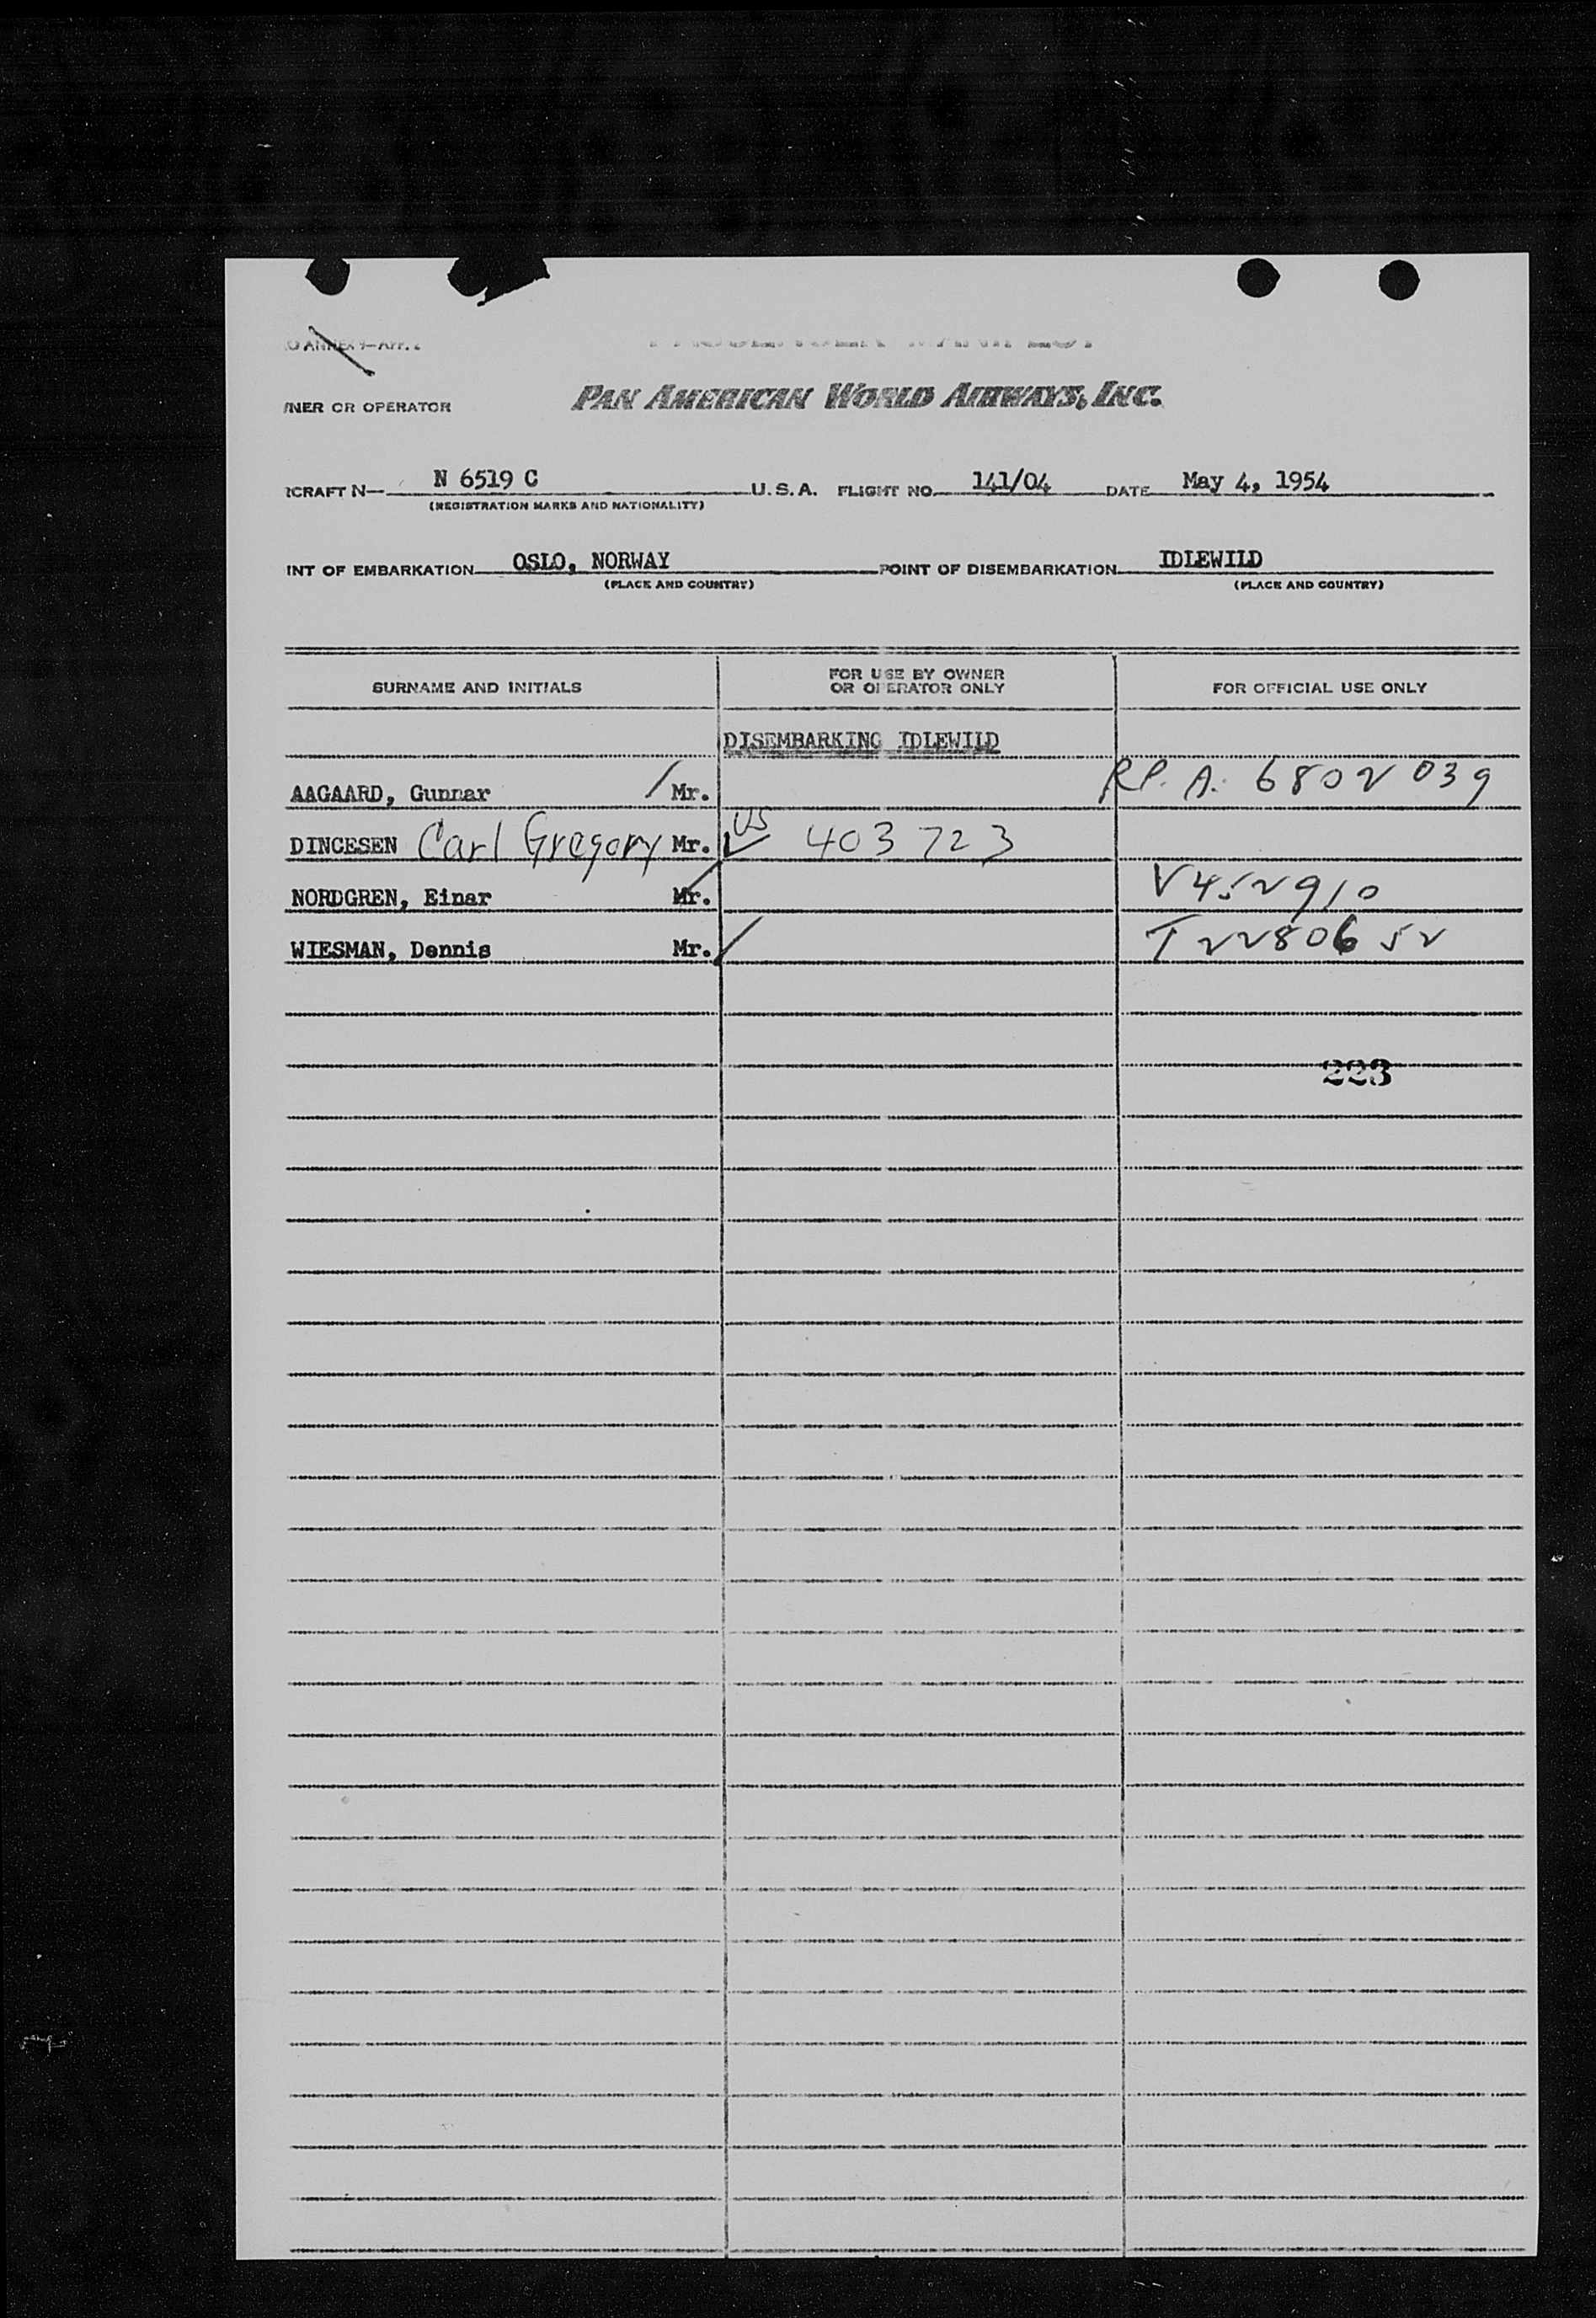 O ANNEX 9—APP. 2
PASSENGER MANIFEST
NER OR OPERATOR PAN AMERICAN WORLD AIRWAYS, INC.
RCRAFT N— N 6519 C U.S.A. FLIGHT NO. 141/04 DATE May 4, 1954
(REGISTRATION MARKS AND NATIONALITY)
INT OF EMBARKATION OSLO, NORWAY POINT OF DISEMBARKATION IDLEWILD
(PLACE AND COUNTRY) (PLACE AND COUNTRY)
SURNAME AND INITIALS FOR USE BY OWNER OR OPERATOR ONLY FOR OFFICIAL USE ONLY
DISEMBARKING IDLEWILD
AAGAARD, Gunnar Mr. R.P. A. 6802039
DINCESEN Carl Gregory Mr. US 403723
NORDGREN, Einar Mr. V452910
WIESMAN, Dennis Mr. T2280652
223